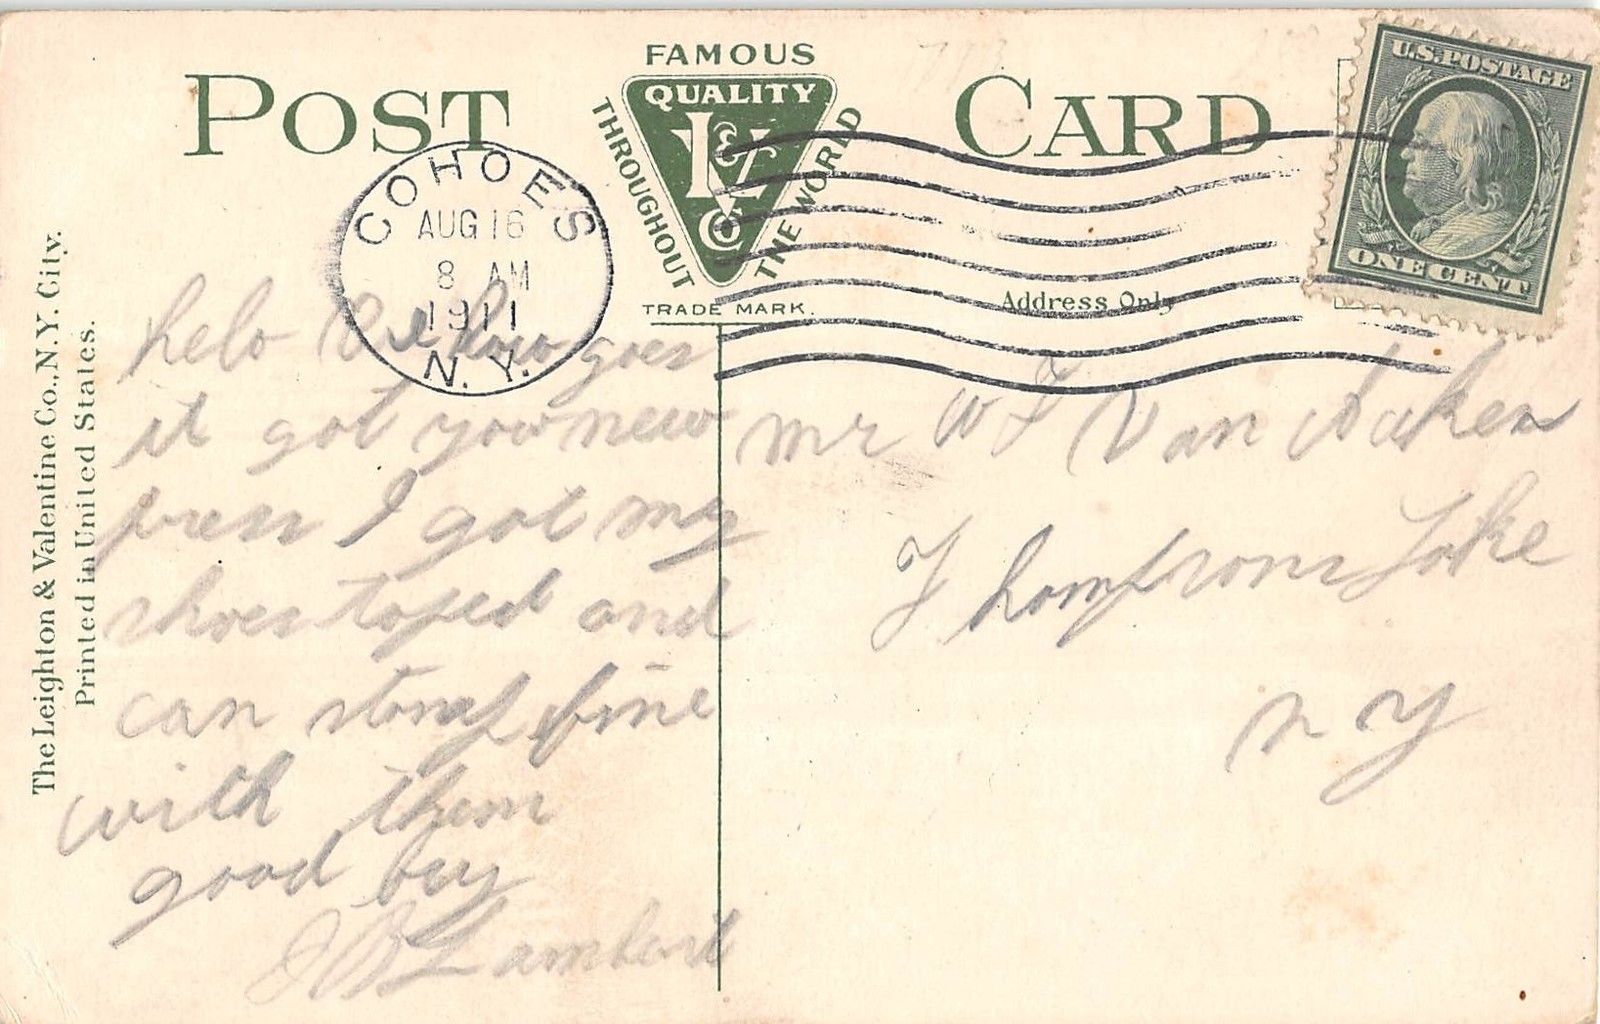 POST CARD
FAMOUS
QUALITY
L & V
Co
THROUGHOUT
THE WORLD
TRADE MARK.
Address Only
U.S. POSTAGE
ONE CENT
COHOES
AUG 16
8 AM
1911
N. Y.
The Leighton & Valentine Co., N.Y. City.
Printed in United States.
helo how goes
it got yow new
press I got my
shoes taped and
can stomp fine
with them
good bey
J B Lambert
mr W F Van Aaken
Thompsons Lake
n y